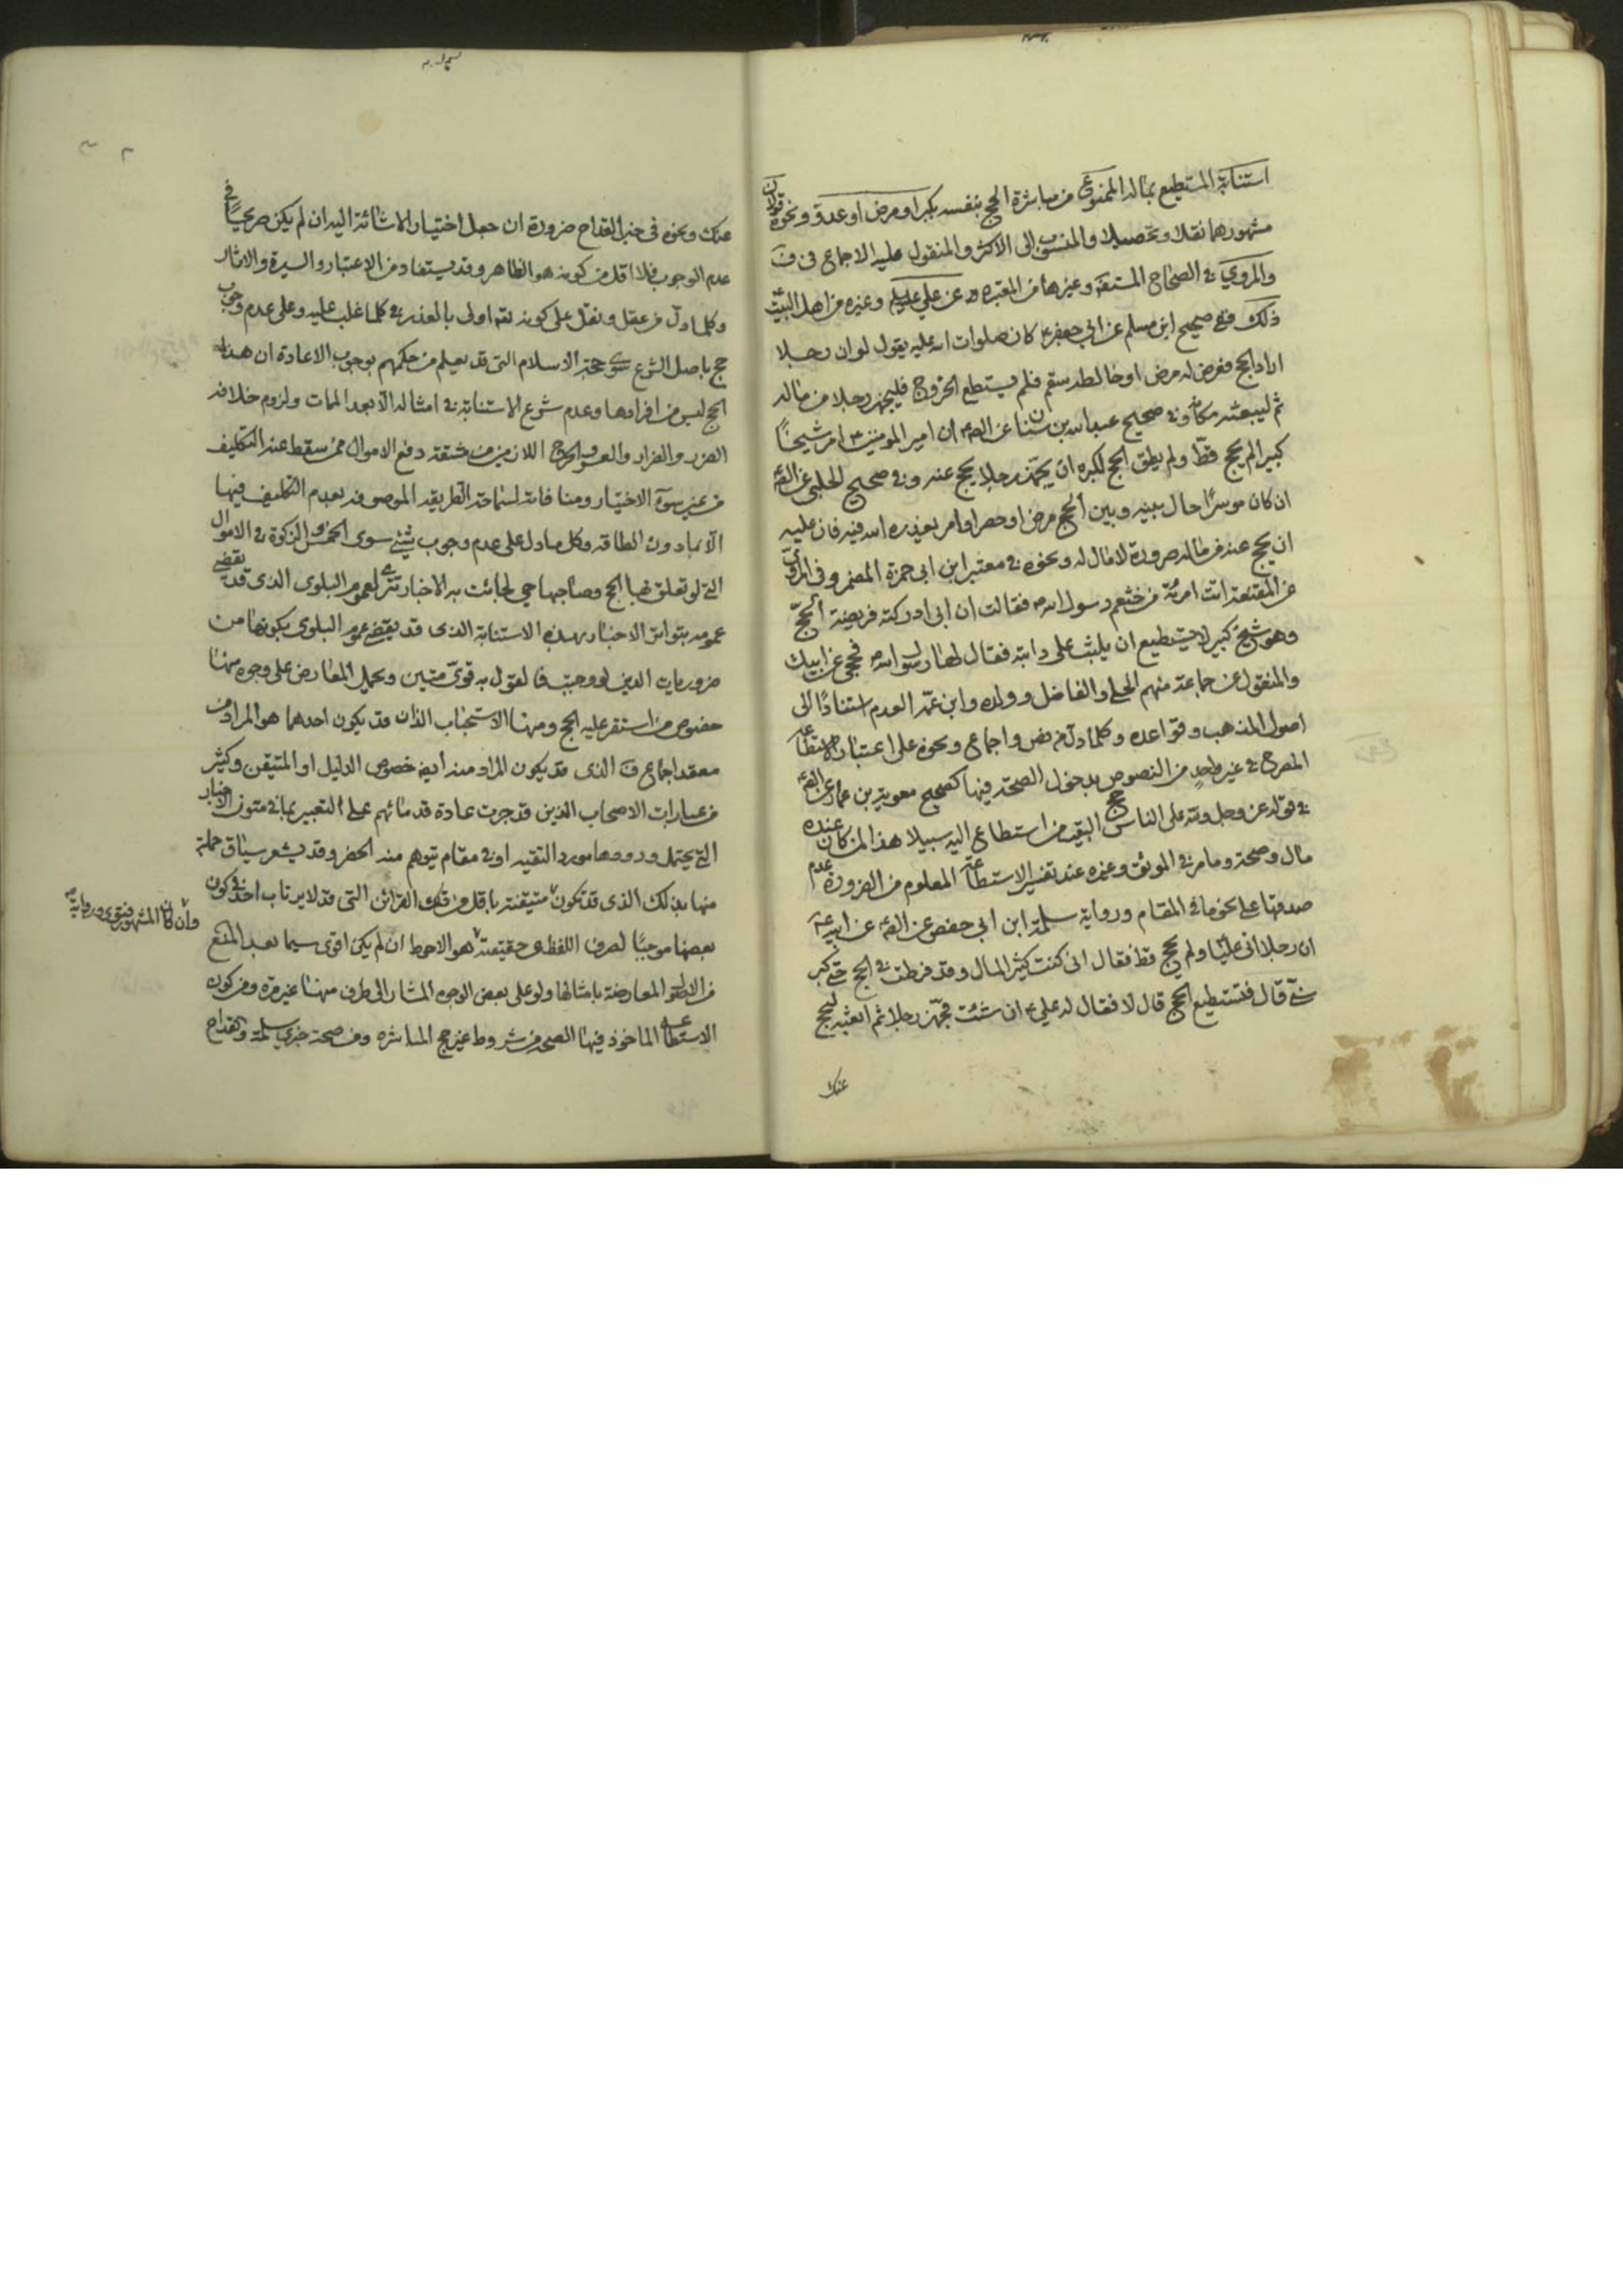 استنابة المستطيع بماله الممنوع من مباشرة الحج بنفسه بكبر او مرض او عدو ونحوه قولان
مشهورهما نقلا وتحصيلا والمنسوب الى الاكثر والمنقول عليه الاجماع في ف
والمروي في الصحاح المستفيضة وغيرها من المعتبرة عن علي عليه السلام وغيره من اهل البيت
ذلك ففي صحيح ابن مسلم عن ابي جعفر ع كان صلوات الله عليه يقول لو ان رجلا
اراد الحج فعرض له مرض او خالطه سقم فلم يستطع الخروج فليجهز رجلا من ماله
ثم ليبعثه مكانه وفي صحيح عبد الله بن سنان عن الصم ان امير المومنين ع امر شيخًا
كبيرا لم يحج قطّ ولم يطق الحج لكبره ان يجهّز رجلا يحج عنه وفي صحيح الحلبي عن الصم
ان كان موسرًا حال بينه وبين الحج مرض او حصر او امر يعذره الله فيه فان عليه
ان يحج عنه من ماله صرورة لا مال له ونحوه في معتبر ابن ابي حمزة المضمر وفي المروي
عن المقنعة اتت امرئة من خثعم رسول الله فقالت ان ابي ادركته فريضة الحجّ
وهو شيخ كبير لا يستطيع ان يلبث على دابته فقال لها رسول الله فحجي عن ابيك
والمنقول عن جماعة منهم الحلي والفاضل وولده وابن عمّه العدم استنادًا الى
اصول المذهب وقواعده وكلما دل من نص واجماع ونحوه على اعتبار الاستطاعة
المصرح في غير واحد من النصوص بدخول الصحة فيها كصحيح معوية بن عمار عن الصم
في قوله عز وجل ولله على الناس حج البيت من استطاع اليه سبيلا هذا لمن كان عنده
مال وصحة وما مر في الموثق وغيره عند تفسير الاستطاعة المعلوم من الضرورة عدم
صدقها على نحو ما في المقام ورواية سلمة ابن ابي حفص عن الصم عن ابيه ع
ان رجلا اتى عليًا ولم يحج قط فقال اني كنت كثير المال وقد فرطت في الحج حتى كبر
سني قال فتستطيع الحج قال لا فقال له علي ع ان شئت فجهّز رجلا ثم ابعثه ليحج
عنك
عنك ونحوه في خبر القداح ضرورة ان جعل اختيار الاشائة اليه ان لم يكن صريحًا في
عدم الوجوب فلا اقل من كونه هو الظاهر وقد يستفاد من الاعتبار والسيرة والاثار
وكلما دل من عقل ونقل على كونه تعه اولى بالعذر في كلما غلب عليه وعلى عدم وجوب
حج باصل الشرع سوى حجة الاسلام التي قد يعلم من حكمهم بوجوب الاعادة ان هذا
الحج ليس من افرادها وعدم شرع الاستنابة في امثاله الا بعد الممات ولزوم خلافه
الضرر والضرار والعسر والحرج اللازمين من مشقة دفع الاموال ممن سقط عنه التكليف
من غير سوء الاختيار ومنافاته لسماحة الطريقه الموصوفه بعدم التكليف فيها
الا بما دون الطاقه وكل ما دل على عدم وجوب شيء سوى الخمس والزكوة في الاموال
التي لو تعلق بها الحج وصاحبها حي لجائت به الاخبار تترى لعموم البلوى الذي قد يقضي
عمومه بتواتر الاخبار بهذه الاستنابة الذي قد يقضي عموم البلوى بكونها من
ضروريات الدين لو وجبت فالقول به قوىّ متين ويحمل المعارض على وجوه منها
خصوص من استقر عليه الحج ومنها الاستحباب الذان قد يكون احدهما هو المراد من
معقد اجماع ف الذى قد يكون المراد منه ايضا خصوص الدليل او المتيقن وكثير
من عبارات الاصحاب الذين قد جرت عادة قدمائهم على التعبير بما في متون الاخبار
التي يحتمل ورودها مورد التقيه او في مقام توهم منه الحضر وقد يشعر سياق جملة
منها بذلك الذى قد تكون متيقنة باقل من تلك القرائن التى قد لا يرتاب احد في كون
بعضها موجبًا لصرف اللفظ عن حقيقته هو الاحوط ان لم يكن اقوى سيما بعد المنع
من الاصول المعارضة بامثالها ولو على بعض الوجوه المشار الى طرف منها غير مرة ومن كون
الاستطاعة الماخوذ فيها الصحة من شروط غير حج المباشره ومن صحة خبري سلمة والقداح
وان كان المشهور فتوى ورواية